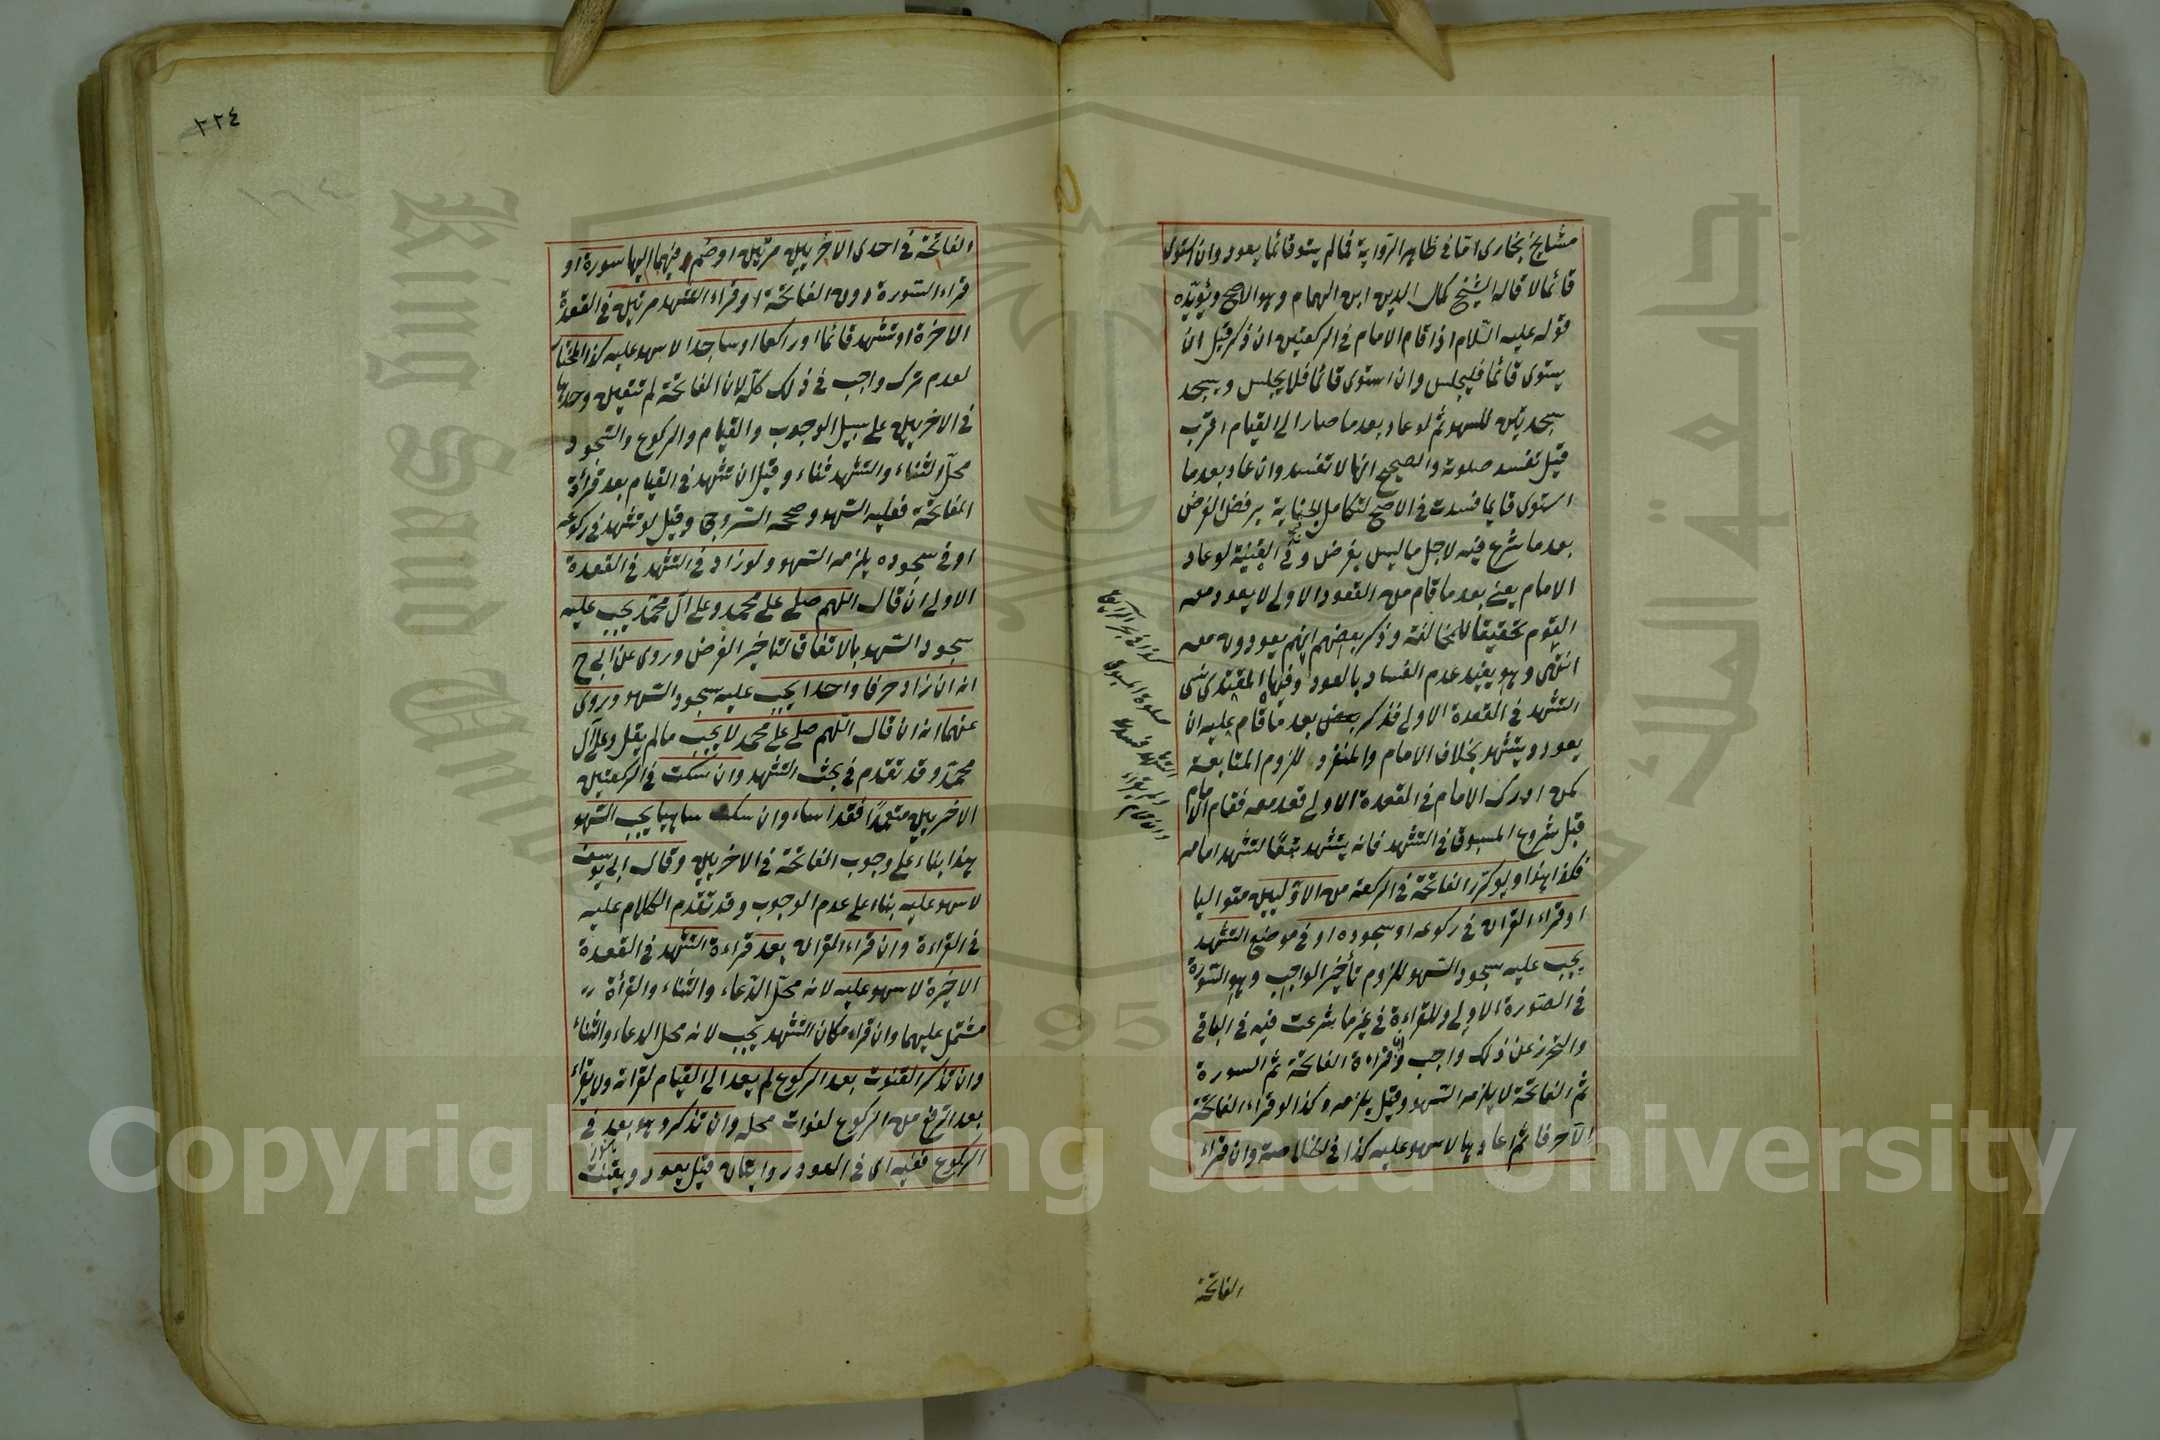 مشايخ بخارى اما في ظاهر الرواية فما لم يستو قائما يعود وان استوى
قائما لا قاله الشيخ كمال الدين ابن الهمام وهو الاصح ويؤيده
قوله عليه السلام اذا قام الامام في الركعتين ان ذكر قبل ان
يستوى قائما فليجلس وان استوى قائما فلا يجلس ويسجد
سجدتين للسهو ثم لو عاد بعد ما صار الى القيام اقرب
قيل تفسد صلوته والصحيح انها لا تفسد وان عاد بعد ما
استوى قايما فسدت في الاصح لتكامل الجناية برفض الفرض
بعد ما شرع فيه لاجل ما ليس بفرض وفي القنية لو عاد
الامام يعنى بعد ما قام من القعود الاولى لا يعود معه
القوم تحقيقا للمخالفة وذكر بعضهم انهم يعودون معه
انتهى وهو يفيد عدم الفساد بالعود وفيها المقتدى نسى
التشهد في القعدة الاولى فذكر بعض بعد ما قام عليه ان
يعود ويتشهد بخلاف الامام والمنفرد للزوم المتابعة
كمن ادرك الامام في القعدة الاولى فقعد معه فقام الامام
قبل شروع المسبوق في التشهد فانه يتشهد تبعا لتشهد امامه
فكذا هذا ولو كرر الفاتحة في الركعة من الاوليين متواليا
او قراء القران في ركوعه او سجوده او في موضع التشهد
يجب عليه سجود السهو للزوم تأخير الواجب وهو السورة
في الصورة الاولى وللقراءة في غير ما شرعت فيه في الباقي
والتحرز عن ذلك واجب وان قراءة الفاتحة ثم السورة
ثم الفاتحة لا يلزمه السهو وقيل يلزمه وكذا لو قراء الفاتحة
الا حرفا ثم اعادها لا سهو عليه كذا في الخلاصة وان قراء
صلوة المسبوق
الفاتحة
٢٢٤
الفاتحة في احدى الاخريين مرتين او ضم فيهما اليها سورة او
قراء السورة دون الفاتحة او قراء التشهد مرتين في القعدة
الاخرة او تشهد قائما او راكعا او ساجدا لا سهو عليه كذا المختار
لعدم ترك واجب في ذلك كله لان الفاتحة لم تتعين وحدها
في الاخريين على سبيل الوجوب والقيام والركوع والسجود
محل الثناء والتشهد ثناء وقيل ان تشهد في القيام بعد قرأة
الفاتحة فعليه السهو وصححه السروجى وقيل لو تشهد في ركوعه
او في سجوده يلزمه السهو ولو زاد في التشهد في القعدة
الاولى ان قال اللهم صلى على محمد وعلى آل محمد يجب عليه
سجود السهو بالاتفاق لتاخير الفرض وروى عن ابي ح
انه ان زاد حرفا واحدا يجب عليه سجود السهو وروى
عنهما انه ان قال اللهم صلى على محمد لا يجب مالم يقل وعلى آل
محمد وقد تقدم في بحث التشهد وان سكت في الركعتين
الاخريين متعمدا فقد اساء وان سكت ساهيا يجب السهو
هذا بناء على وجوب الفاتحة في الاخريين وقال ابي يوسف
لا سهو عليه بناء على عدم الوجوب وقد تقدم الكلام عليه
في القراءة وان قراء القران بعد قراءة التشهد في القعدة
الاخيرة لا سهو عليه لانه محل الدعاء والثناء والقرأة
مشتمل عليهما وان قراء مكان التشهد يجب لانه محل الدعاء والثناء
وان تذكر القنوت بعد الركوع لم يعد الى القيام لقرانه ولا يقراء
بعد الرفع من الركوع لفوات محله وان تذكر وهو بعد في
الركوع ففيه اى في العود روايتان قيل يعود ويقنت